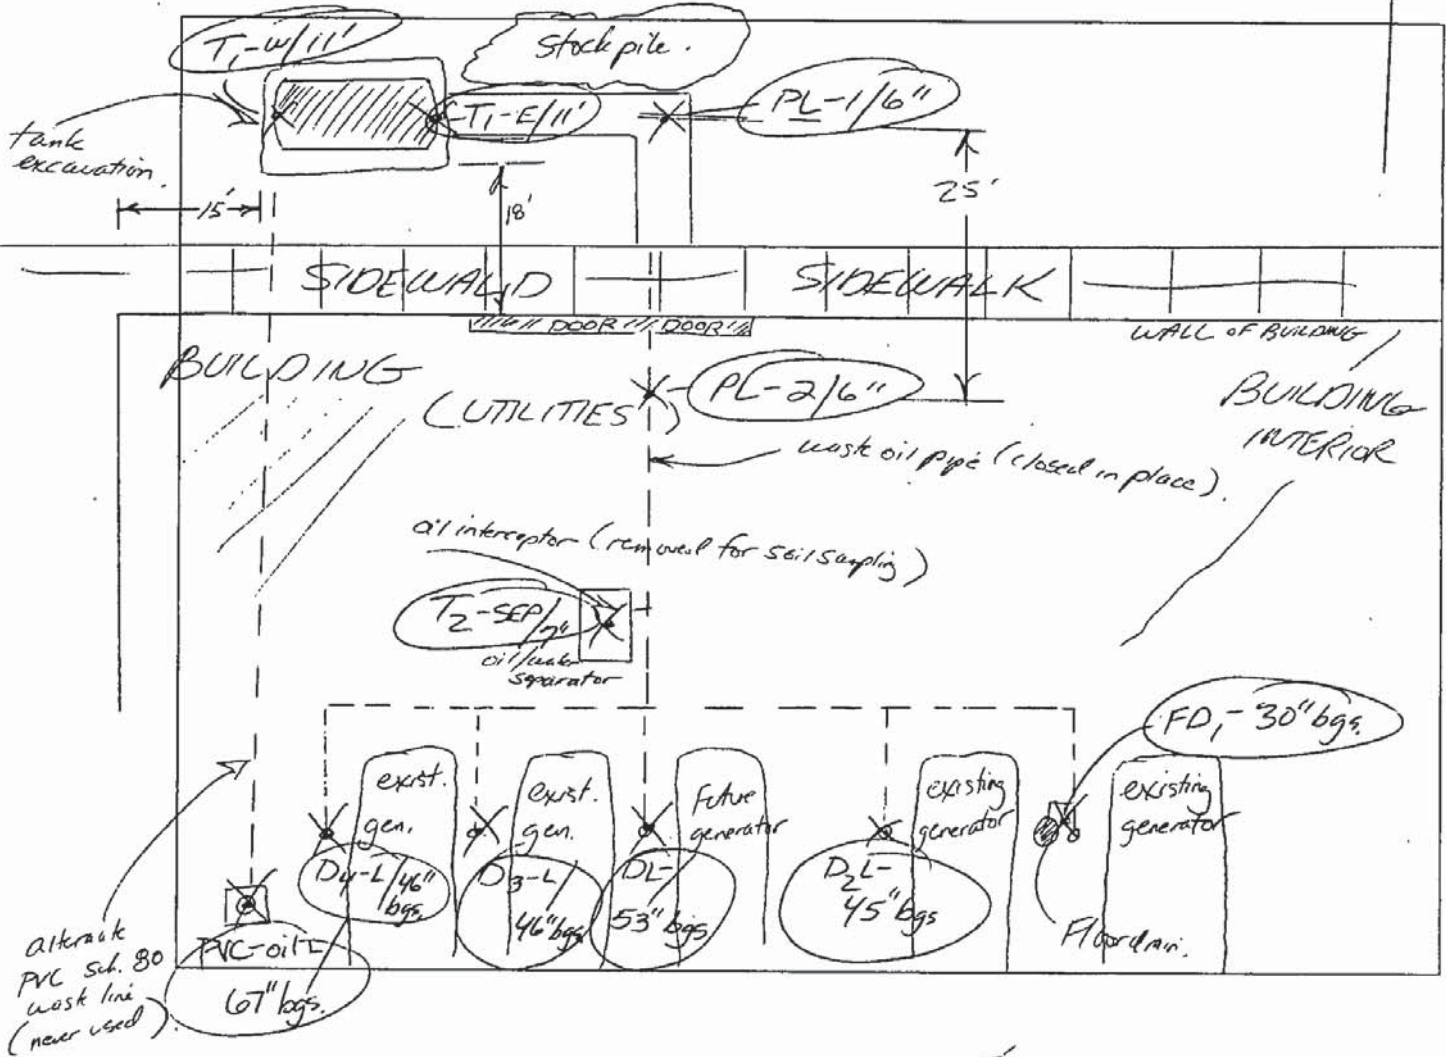 T1-W/11'
Stockpile.
T1-E/11'
PL-1/6"
tank
excavation.
15'
18'
25'
SIDEWAL
SIDEWALK
DOOR DOOR
WALL OF BUILDING
BUILDING
(UTILITIES)
PL-2/6"
BUILDING
INTERIOR
waste oil pipe (closed in place).
oil interceptor (removed for soil sampling)
T2-SEP/7"
oil/water
separator
FD1-30" bgs.
exist.
gen.
exist.
gen.
Future
generator
existing
generator
existing
generator
D4-L/46"
bgs.
D3-L/
46" bgs
DL-
53" bgs
D2L-
45" bgs
Floor drain.
PVC-oil
67" bgs.
alternate
PVC Sch. 80
waste line
(never used).